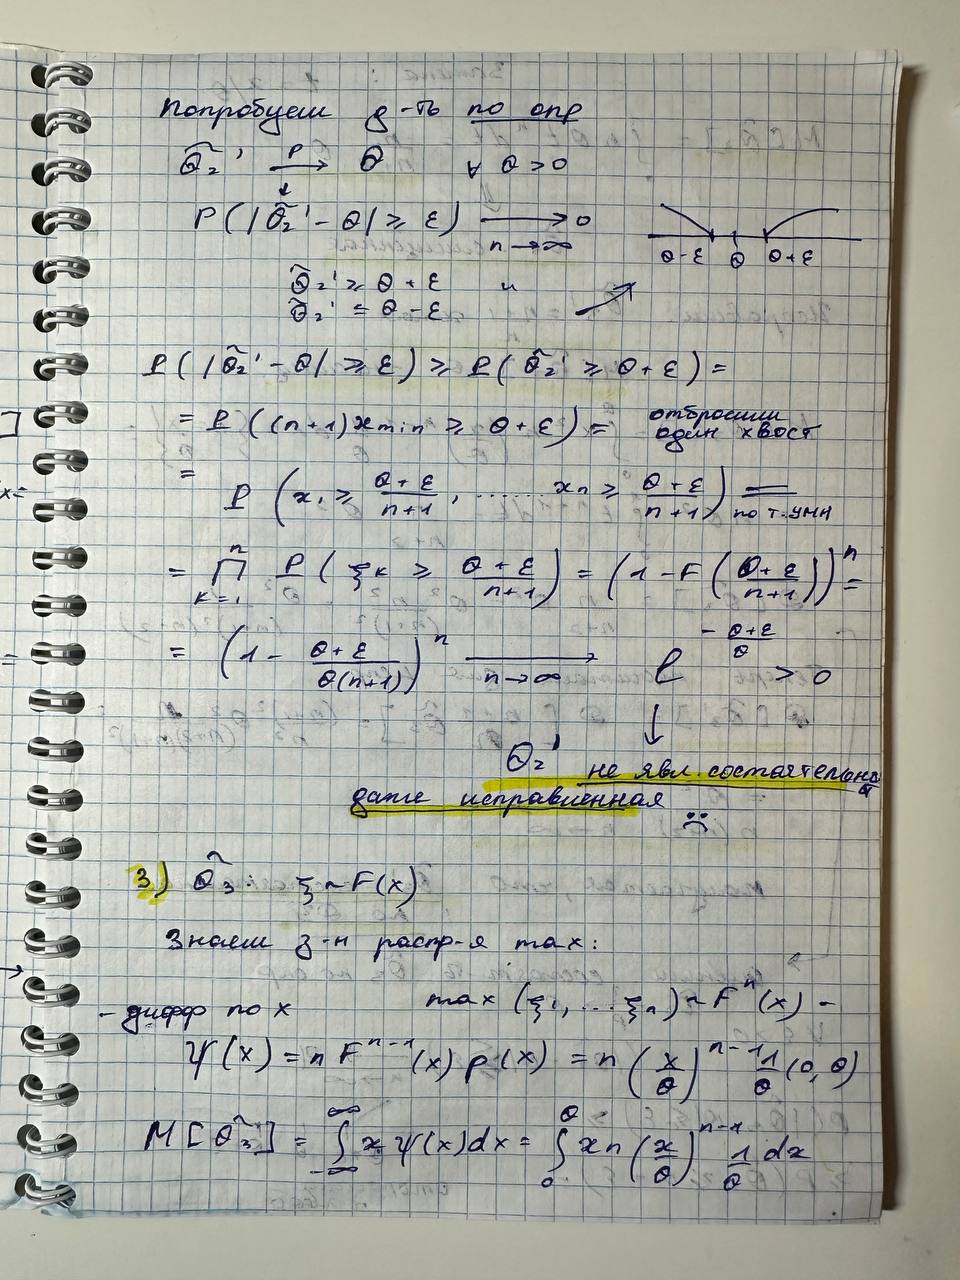 Попробуем д-ть по опр
θ̃₂' —P→ θ ∀ θ > 0
↓
P(|θ̃₂' - θ| ≥ ε) ⟶ 0
n→∞
θ-ε θ θ+ε
θ̃₂' ≥ θ + ε и
θ̃₂' ≤ θ - ε
P(|θ̃₂' - θ| ≥ ε) ≥ P(θ̃₂' ≥ θ + ε) =
= P((n+1)x min ≥ θ + ε) = отбросили один хвост
= P(x₁ ≥ (θ+ε)/(n+1), ...... xₙ ≥ (θ+ε)/(n+1)) = по т. умн
= ∏ₖ₌₁ⁿ P(ξₖ ≥ (θ+ε)/(n+1)) = (1 - F((θ+ε)/(n+1)))ⁿ =
= (1 - (θ+ε)/(θ(n+1)))ⁿ ⟶ e^(-(θ+ε)/θ) > 0
n→∞
↓
θ̃₂' не явл. состоятельной
даже исправленная ☹
3) θ̃₃: ξ ~ F(x)
Знаем з-н распр-я max:
max(ξ₁, ... ξₙ) ~ Fⁿ(x) -
- дифф по x
ψ(x) = n Fⁿ⁻¹(x) p(x) = n (x/θ)ⁿ⁻¹ 1/θ 1(0, θ)
M[θ̃₃] = ∫₋∞^∞ x ψ(x)dx = ∫₀^θ x n (x/θ)ⁿ⁻¹ 1/θ dx